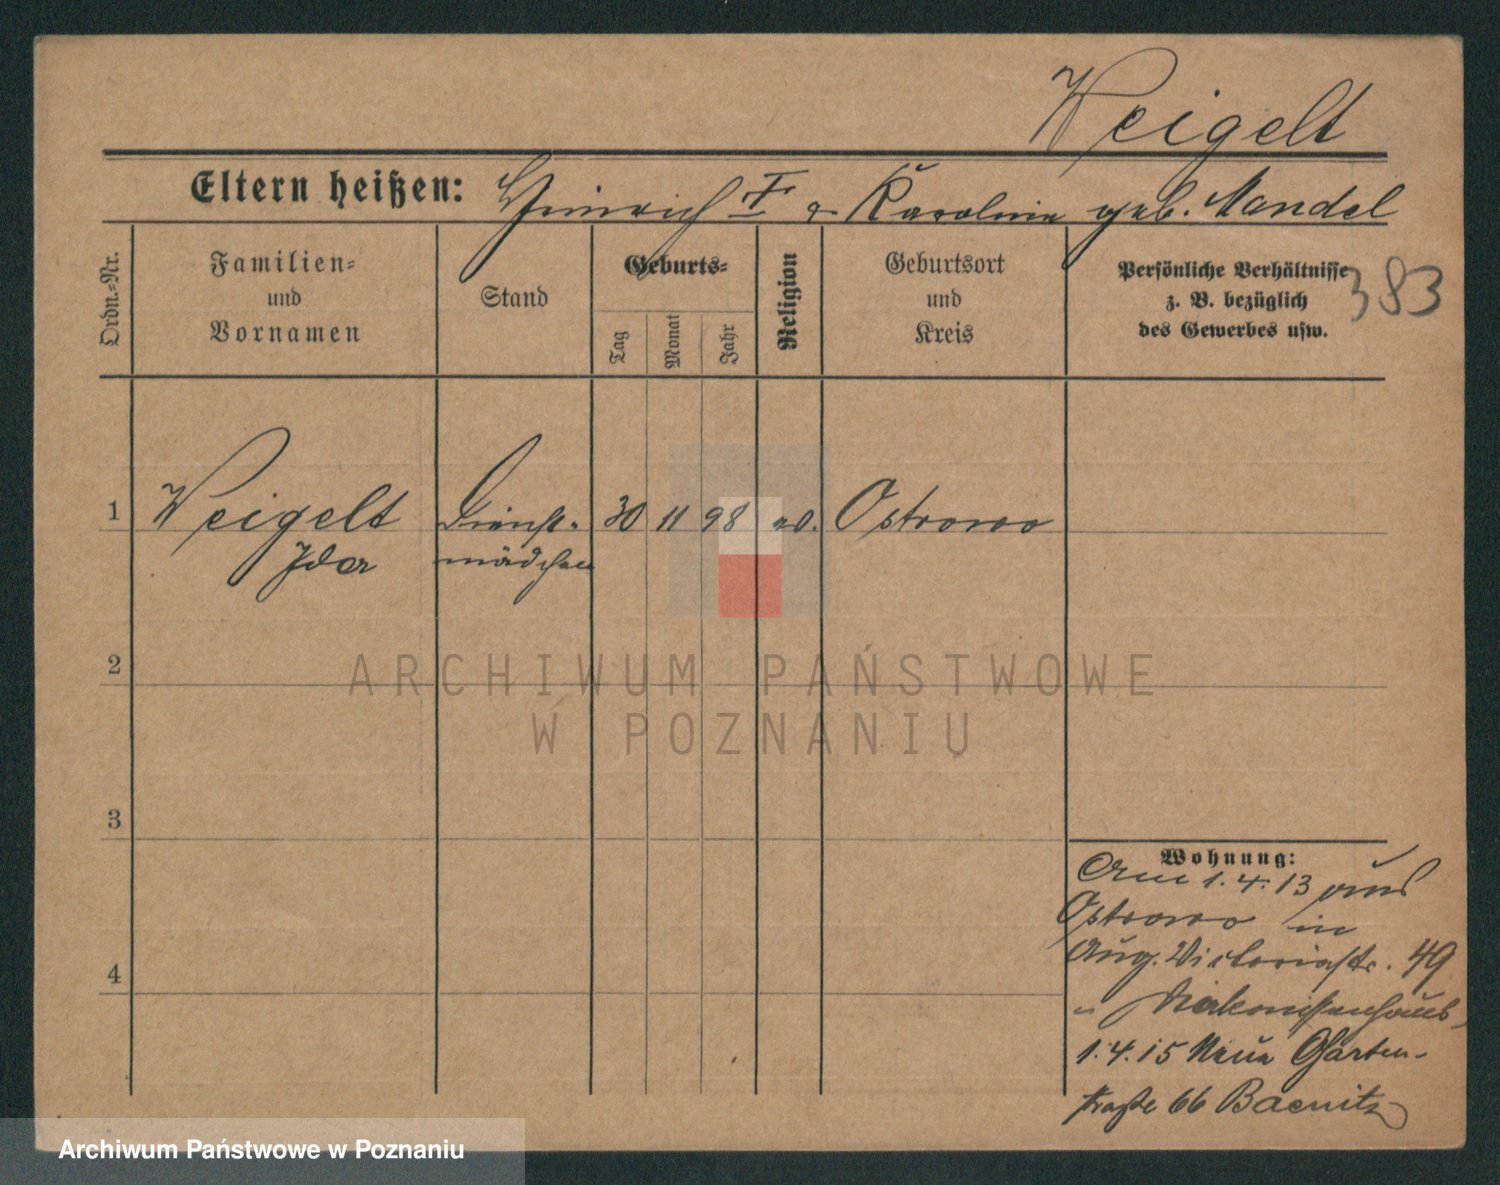 Weigelt
Eltern heißen: Heinrich F & Karoline geb. Mandel
Ordn.-Nr.
Familien-
und
Vornamen
Stand
Geburts-
Tag
Monat
Jahr
Religion
Geburtsort
und
Kreis
Persönliche Verhältnisse
z. B. bezüglich
des Gewerbes usw.
383
1 Weigelt Dienst- 30 11 98 ev. Ostrowo
Ida mädchen
2
3
4
Wohnung:
Am 1.4.13 aus
Ostrowo in
Aug. Victoriastr. 49
Diakonissenhaus
1.4.15 Neue Garten-
straße 66 Baenitz
ARCHIWUM PAŃSTWOWE
W POZNANIU
Archiwum Państwowe w Poznaniu